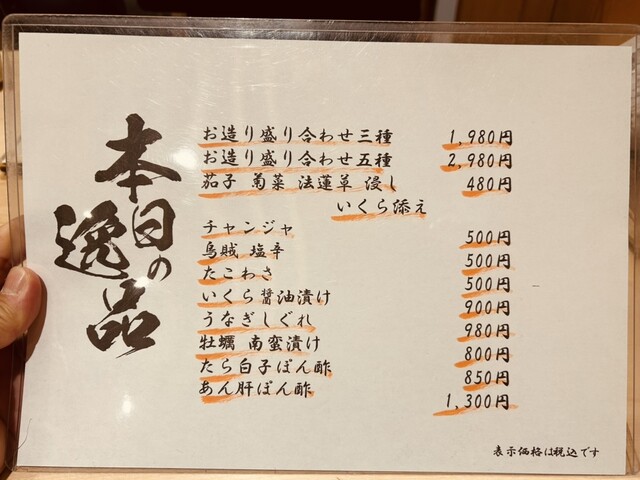 本日の
逸品
お造り盛り合わせ三種 1,980円
お造り盛り合わせ五種 2,980円
茄子 菊菜 法蓮草 浸し 480円
いくら添え
チャンジャ 500円
烏賊 塩辛 500円
たこわさ 500円
いくら醤油漬け 900円
うなぎしぐれ 980円
牡蠣 南蛮漬け 800円
たら白子ぽん酢 850円
あん肝ぽん酢 1,300円
表示価格は税込です